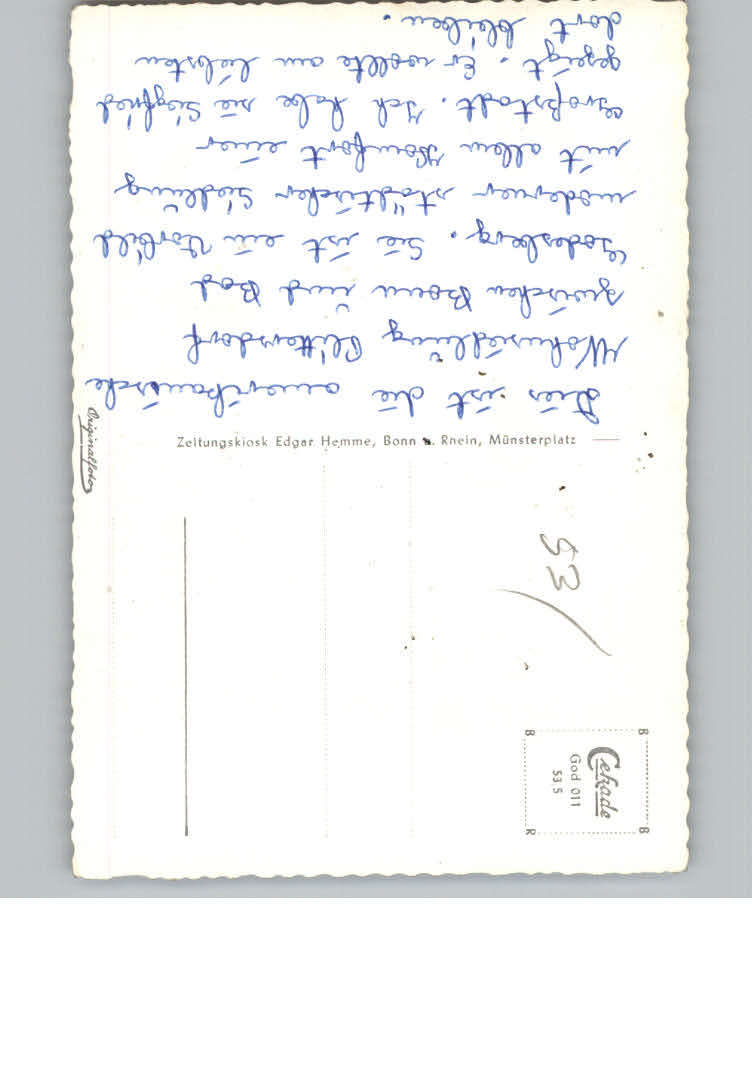 Dies ist die amerikanische
Wohnsiedlung Plittersdorf
zwischen Bonn und Bad
Godesberg. Sie ist ein Vorbild
moderner städtischer Siedlung
mit allem Komfort einer
Großstadt. Ich habe sie Siegfried
gezeigt. Er wollte am liebsten
dort bleiben.
Zeitungskiosk Edgar Hemme, Bonn a. Rhein, Münsterplatz
Originalfoto
53/
Cekade
God 011
53 5
B
B
B
R